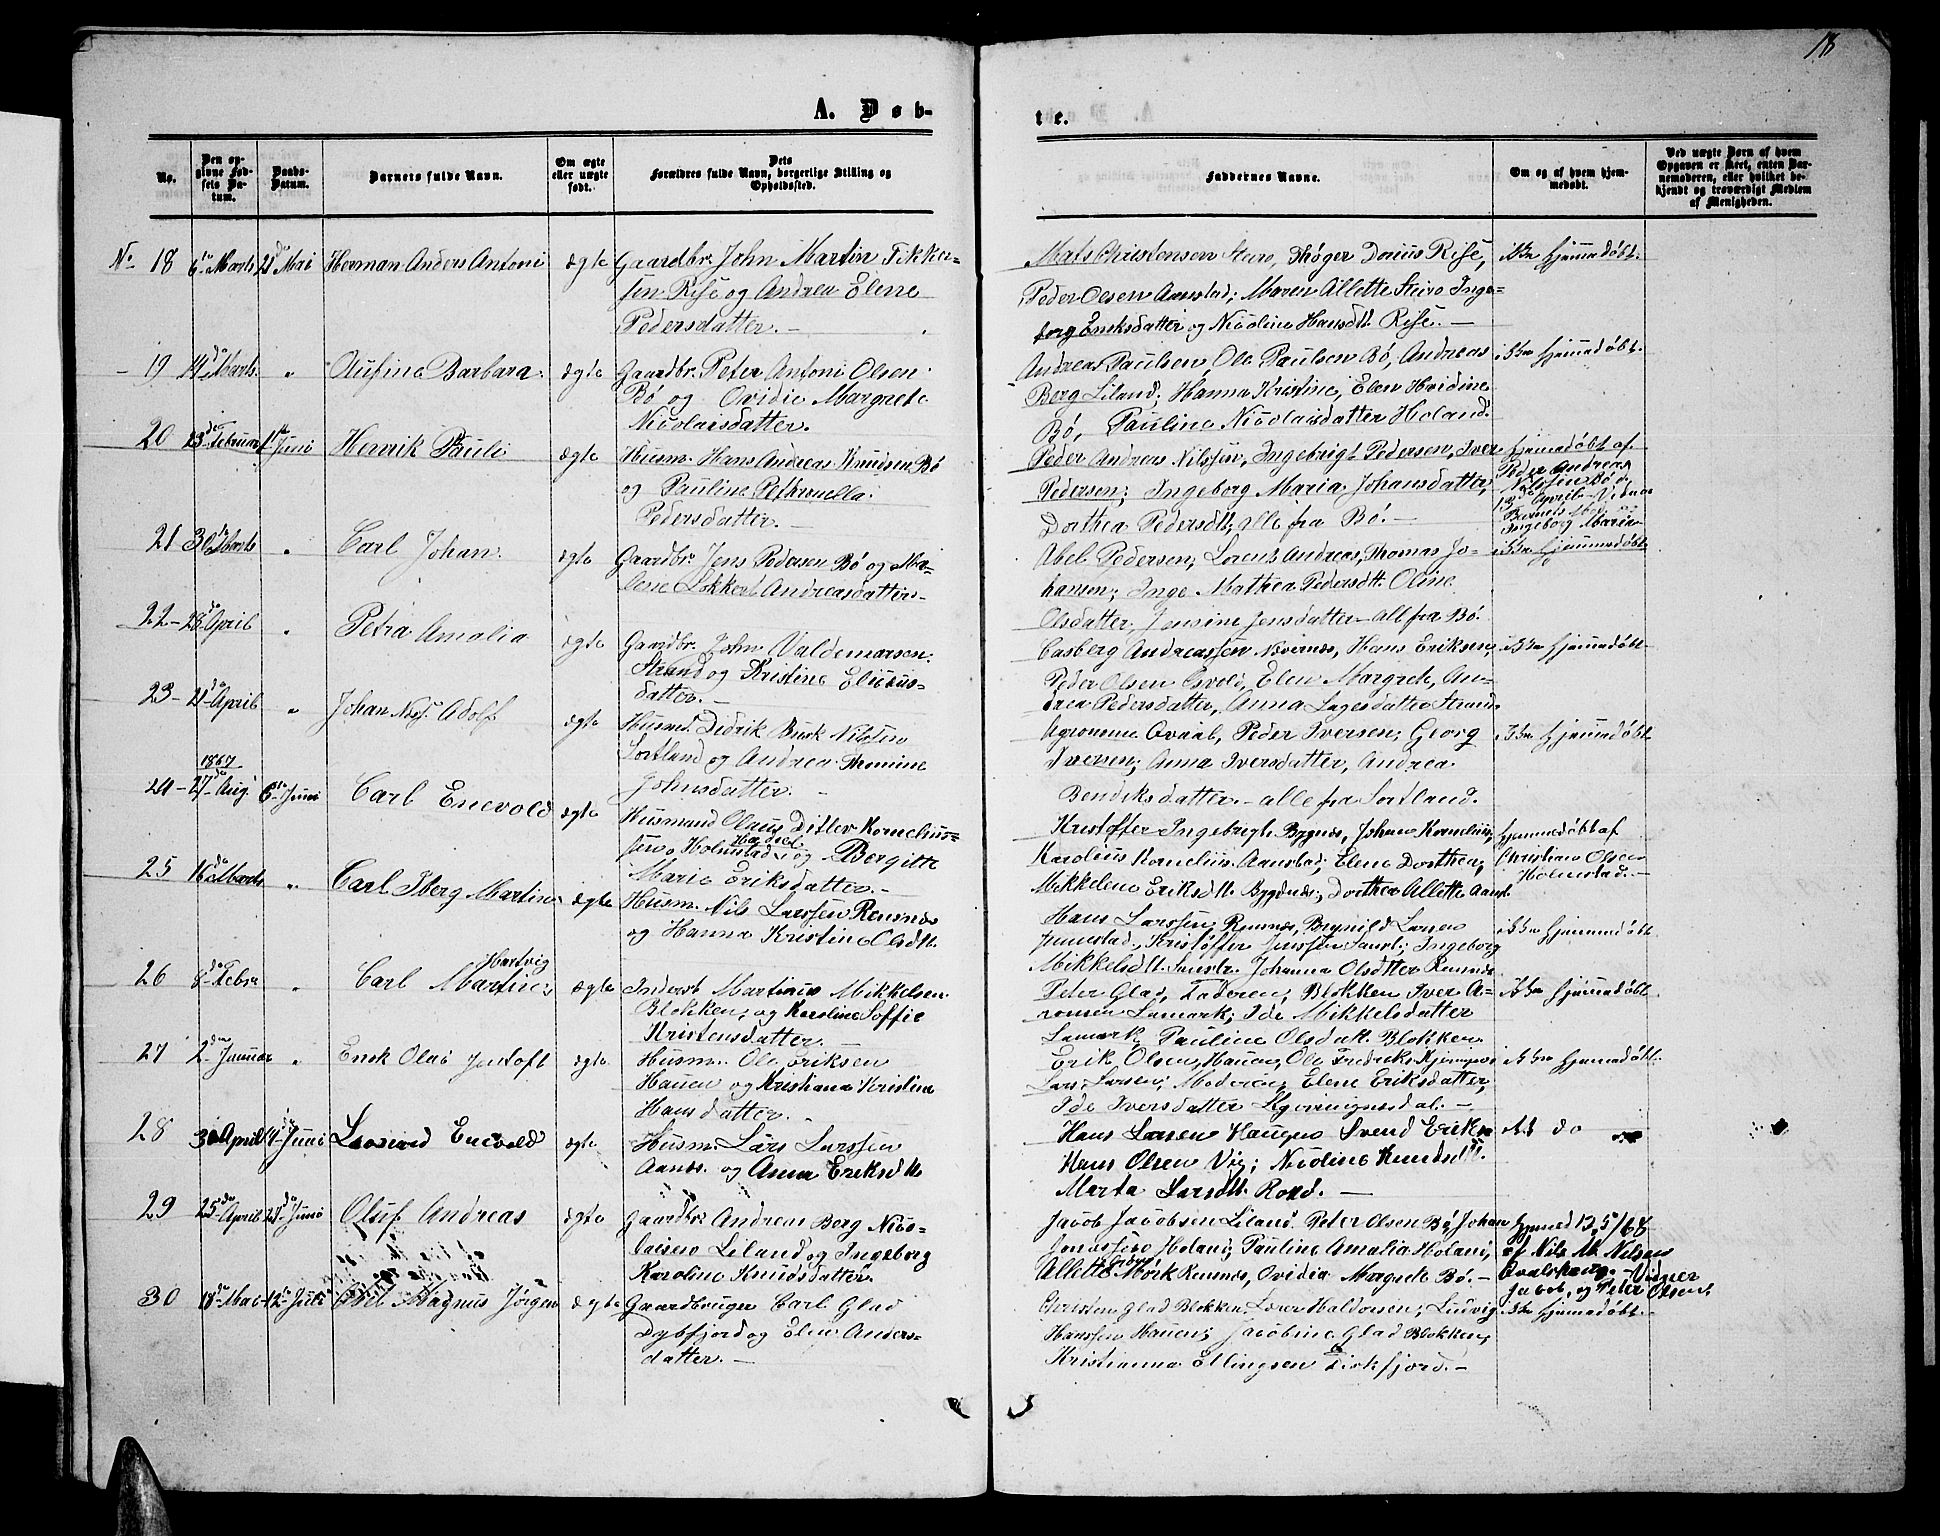 18
A. Døb-
te.
No.
Den opgivne Fødsels Datum.
Daabs-Datum.
Barnets fulde Navn.
Om ægte eller uægte født.
Dets Forældres fulde Navn, borgerlige Stilling og Opholdssted.
Faddernes Navne.
Om og af hvem hjemmedøbt.
Ved uægte Børn af hvem Opgaven er skeet, enten Barnemoderen, eller hvilket bekjendt og troværdigt Medlem af Menigheden.
No 18 6te Marts 21de Mai Herman Anders Antoni ægte Gaardbr. John Martin Fikker-
sen Rise og Andrea Elene
Pedersdatter. —
Mats Christensen Steiro, Thøger Dorius Rise, ikke hjemmedøbt.
Peder Olsen Aanstad; Maren Allette Steiro Inge-
borg Eriksdatter og Nicoline Hansdtt. Rise. —
19 14de Marts. " Aufine Barbara. ægte Gaardbr. Peter Antoni Olsen
Bø og Ovidie Margrete
Nicolaisdatter.
Andreas Paulsen, Ole Paulsen Bø, Andreas ikke hjemmedøbt.
Berg Liland; Hanna Kristine, Elen Hvidine
Bø, Pauline Nicolaisdatter Holand.
20 23de Februar 1ste Juni Henrik Pauli ægte Husm. Hans Andreas Knudsen Bø
og Pauline Petronella
Pedersdatter. —
Peder Andreas Nilssen, Ingebrigt Pedersen, Iver
Pedersen; Ingeborg Maria Johansdatter,
Dorthea Pedersdtt, alle fra Bø. —
hjemmedøbt af
Peder Andreas
Nilssen Bø d.
13de April - Vidner
Barnets Mor og
Ingeborg Maria
21 30 Marts " Carl Johan. ægte Gaardbr. Jens Pedersen Bø og Ma-
lene Lokkert Andreasdatter.
Abel Pedersen, Lorents Andreas, Thomas Jo- ikke hjemmedøbt
hansen; Inge Mathea Pedersdtt. Oline
Olsdatter, Jensine Jensdatter alle fra Bø.
22 28de April " Petra Amalia ægte Gaardbr. John Valdemarsen
Strand og Kristine Elieus-
datter. —
Casberg Andreassen Nævernes, Hans Eriksen, ikke hjemmedøbt
Peder Olsen Osvold, Elen Margrete, An-
drea Pedersdatter, Anna Lagesdatter Strand
23 21de April " Johan Adolf ægte Husm. Didrik Burk Nilssen
Sortland og Andrea Thomine
Johnsdatter. —
Agronome Qvaal, Peder Iversen; Georg ikke hjemmedøbt
Iversen; Anna Iversdatter, Andrea
Bendiksdatter. — alle fra Sortland.
24 1867 27de Aug. 6te Juni Carl Enevold ægte Husmand Olaus Ditlev Kornelius-
sen, Holmstad Hadsel og Bergitte
Marie Eriksdatter. —
Kristoffer Ingebrigts. Bygnæs, Johan Kornelius,
Karolius Kornelius. Aanstad; Elene Dorthea,
Mikkeline Eriksdtt. Bygdnæs, Dorthea Allette Aanst.
hjemmedøbt af
Christian Olsen
Holmstad. —
25 16de Marts " Carl Iberg Martin ægte Husm. Nils Larssen Rensnæs
og Hanna Kristine Olsdtt.
Hans Larssen Rensnæs, Brynild Larsen ikke hjemmedøbt
Junestad, Kristoffer Jenssen; Ingeborg
Mikkelsdtt. Johanna Olsdtter Rensnæs
26 8de Febr. " Carl Hartvig Martin ægte Inderst Martinus Mikkelsen
Blokken; og Karoline Soffie
Kristensdatter. —
Peter Glad, Faderen, Blokken Iver A- ikke hjemmedøbt
ronsen Lamark; Ide Mikkelsdatter
Lamark, Pauline Olsdatt. Blokken
27 2den Januar " Erik Olai Jentoft ægte Husm. Ole Eriksen
Hauen og Kristiana Kristine
Hansdatter. —
Erik Olsen, Hauen, Ole Fredriks. Kjeringnes ikke hjemmedøbt.
Lars Larsen; Moderen, Elene Eriksdatter,
Ide Iversdatter Kjeringnesdal. —
28 30 April 14de Juni Leonard Enevold ægte Husm. Lars Larssen
Aanæs. og Anna Eriksdtt.
Hans Larsen Haugnes Svend Eriks. do
Hans Olsen Vig; Nicoline Knudsdtt.
Marta Larsdtt. Roxd. —
29 25de April 24de Juni Oluf Andreas ægte Gaardbr. Andreas Berg Nico-
laisen Liland og Ingeborg
Karoline Knudsdatter.
Jacob Jacobsen Liland. Peter Olsen Bø, Johan
Jonassen Holand; Pauline Amalia Holand,
Allette Mørk Rensnæs, Ovidia Margrete Bø. —
hjemmed 13/5/68
af Nils M. Nilsen
Qvalshaug. — Vidner
Jacob, og Peter Olsen.
30 18de Mai 12te Juli Carl Magnus Jørgen ægte Gaardbruger Carl Glad
Dybfjord og Elen Anders-
datter. —
Christen Glad Blokken, Lorns Haldorsen; Ludvig ikke hjemmedøbt. —
Hanssen Hauen; Jacobine Glad Blokken,
Kristianna Ellingsen Dirkfjord. —